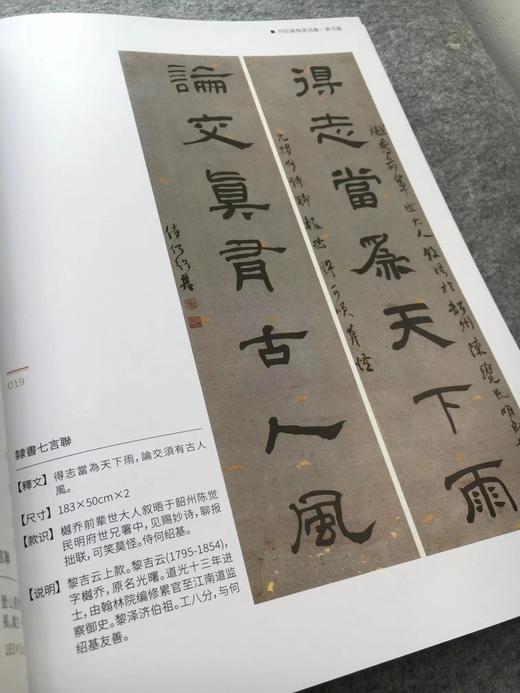 得志當為天下雨
論交眞有古人風
侍何紹基
019
隸書七言聯
【釋文】得志當為天下雨，論交須有古人
風。
【尺寸】183×50cm×2
【款识】樾乔前辈世大人叙晤于韶州陈觉
民明府世兄署中，见赐妙诗，聊报
拙联，可笑莫怪。侍何绍基。
【说明】黎吉云上款。黎吉云(1795-1854)，
字樾乔，原名光曙。道光十三年进
士，由翰林院编修累官至江南道监
察御史。黎泽济伯祖。工八分，与何
绍基友善。